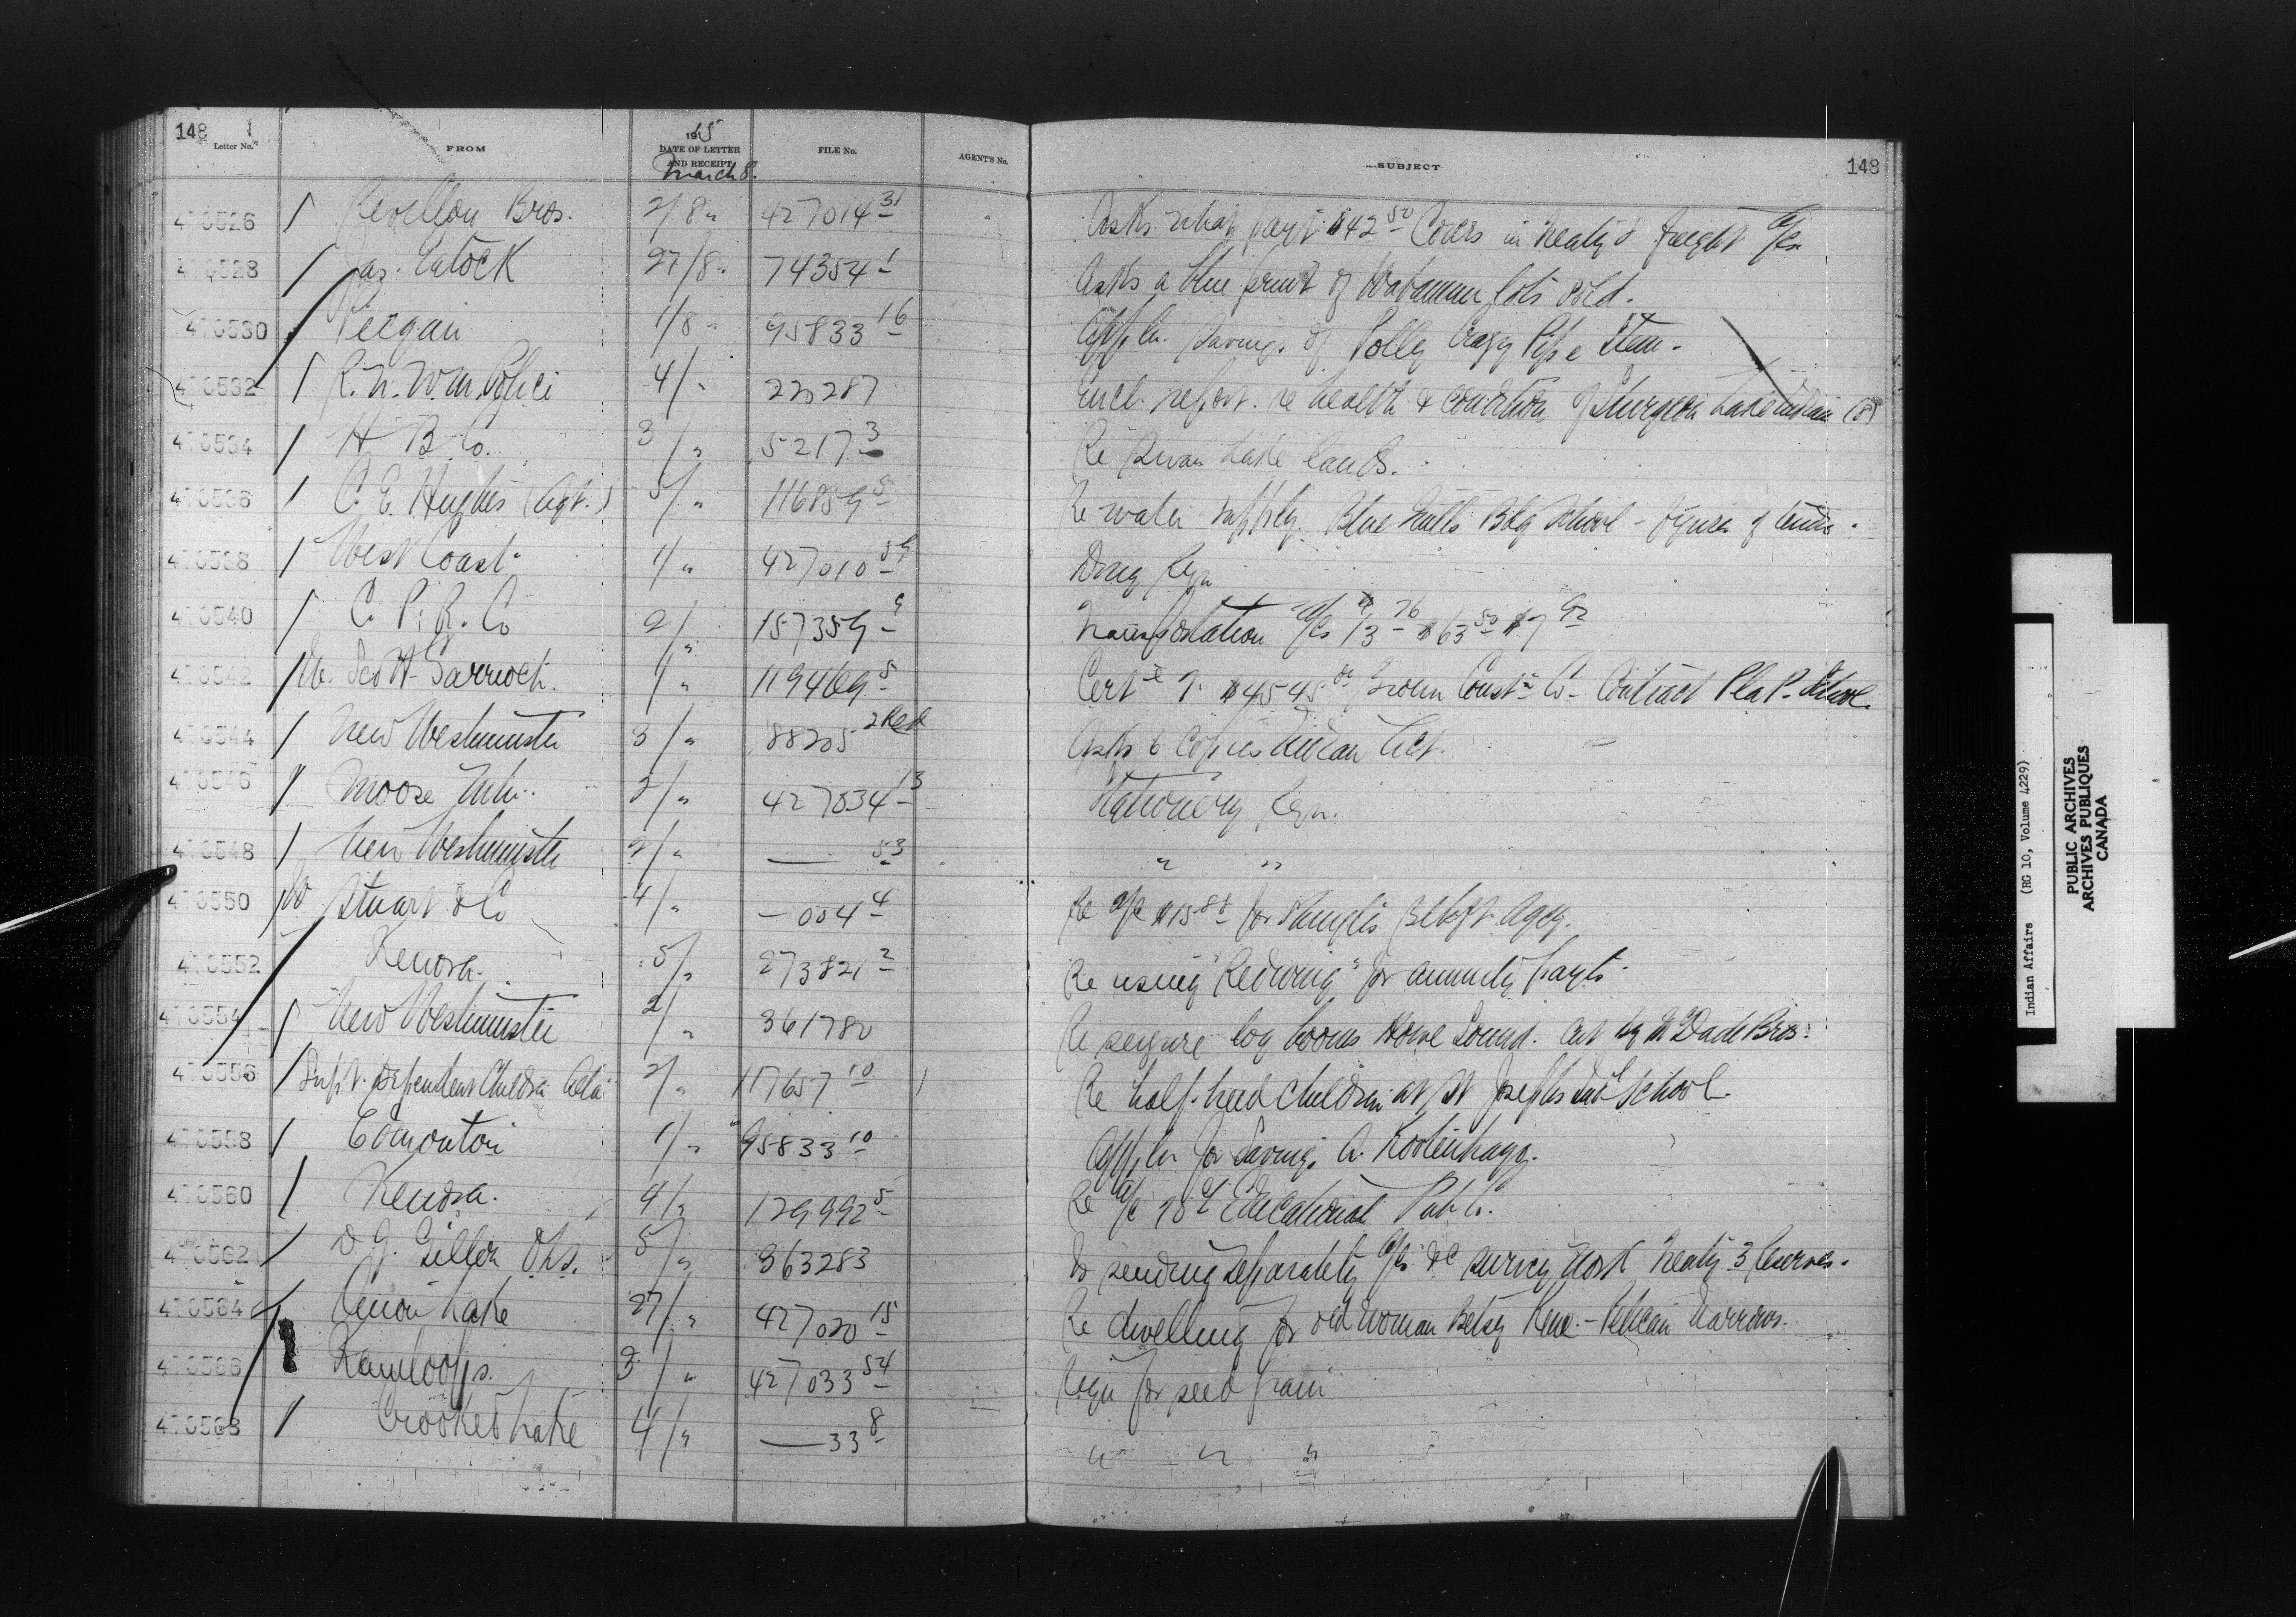 148
Letter No.
FROM
1915
DATE OF LETTER
AND RECEIPT
March 8.
FILE No.
AGENT'S No.
SUBJECT
148
470526 Revillon Bros. 2/8 " 427014-31 Asks what part $42.50 Covers in Treaty 8 freight a/cs
470528 Jas. 27/8 " 74354-1 Asks a blue print of Wabamun lots sold.
470530 Peigan 1/8 " 95833-16 Appln. Savings of Polly Crazy Pipe Stem.
470532 R. N. W. M. Police 4/ " 220287 Encl. report. re health & condition of Sturgeon Lake Indians (8)
470534 H B Co. 3/ " 5217-3 Re Swan Lake lands.
470536 C. E. Hughes (Agt.) 5/ " 116859-5 Re water supply. Blue Quills Bdg School - figures of
470538 West Coast 1/ " 427010-59 Drug Reqn
470540 C. P. R. Co 2/ " 157359-9 Transportation a/cs $13.76 $63.50 $7.92
470542 Scott Garrioch. 1/ " 119469-5 Cert 7. $4545 Brown Const Co. Contract Pla P. School
470544 New Westminster 3/ " 88205 2 Red Asks 6 copies Indian Act.
470546 Moose Mtn. 2/ " 427034-13 Stationery Reqn.
470548 New Westminster 2/ " — 53 " "
470550 Stuart & Co 4/ " — 004-4 Re a/c $15.88 for Shingles Agcy.
470552 Kenora. 5/ " 273821-2 Re using "Redwing" for annuity payts.
470554 New Westminster 2/ " 361780 Re seizure log booms Howe Sound. cut by McDade Bros.
470556 Supt. Dependent Children Alta 2/ " 117657-10 Re half-breed Children at St Josephs Ind School.
470558 Edmonton 1/ " 95833-10 Appln for Savings A. Kootenhayoo.
470560 Kenora. 4/ " 129992-5 Re a/c Educational Pub Co.
470562 D. J. Gillon OLS. 5/ " 363283 Is sending separately a/cs &c survey work Treaty 3 Reserves.
470564 Onion Lake 27/ " 427020-15 Re dwelling for old woman Betsy - Pelican Narrows.
470566 Kamloops. 3/ " 427033-54 Reqn for seed grain
470568 Crooked Lake 4/ " — 33-8 " " "
Indian Affairs (RG 10, Volume 4229)
PUBLIC ARCHIVES
ARCHIVES PUBLIQUES
CANADA